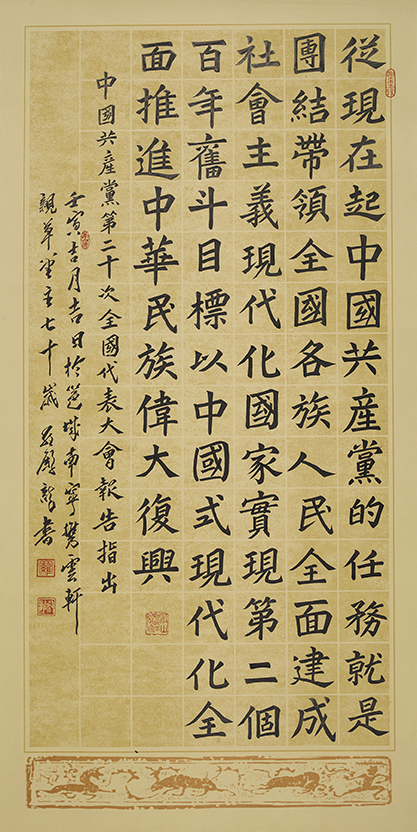 從現在起中國共產黨的任務就是
團結帶領全國各族人民全面建成
社會主義現代化國家實現第二個
百年奮斗目標以中國式現代化全
面推進中華民族偉大復興
中國共產黨第二十次全國代表大會報告指出
壬寅吉月吉日於邕城南寧雲軒
草堂主七十歲書